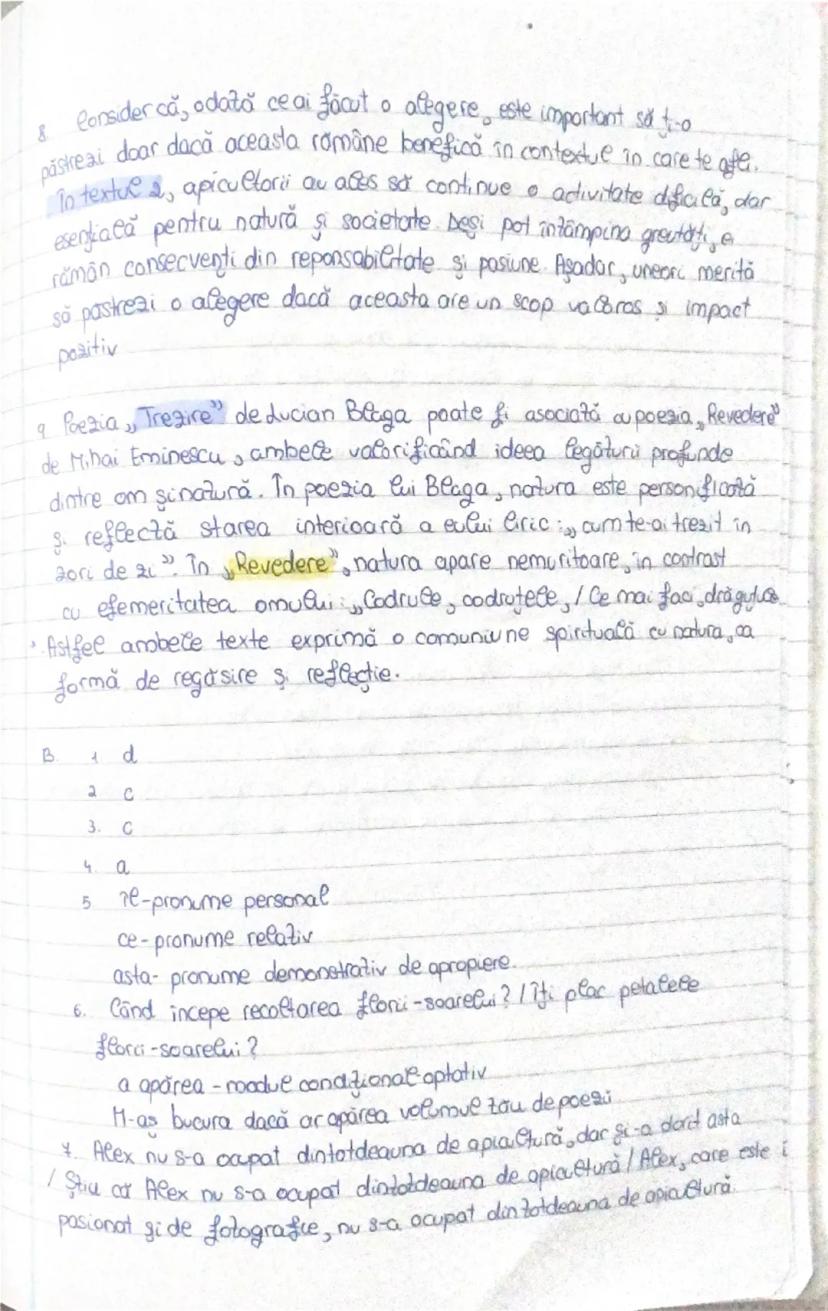 8. Consider că, odată ce ai făcut o alegere, este important să ț-o
păstrezi doar dacă aceasta romăne benefică în contextul în care te afli.
În textul 2, apicultorii au ales să continue o activitate dificilă, dar
esențială pentru natură și societate. Deși pot întâmpina greutăți, ei
rămân consecvenți din reponsabilitate și pasiune. Așadar, uneori merită
să pastrezi o alegere dacă aceasta are un scop valoros și impact
pozitiv
9 Poezia „Trezire” de Lucian Blaga poate fi asociată cu poezia „Revedere”
de Mihai Eminescu, ambele valorificând ideea legăturii profunde
dintre om și natură. În poezia lui Blaga, natura este personificată
și reflectă starea interioară a eului liric: „cum te-ai trezit în
zori de zi”. În „Revedere”, natura apare nemuritoare, în contrast
cu efemeritatea omului: „Codrule, codruțele, / Ce mai faci, drăguțule
”. Astfel ambele texte exprimă o comuniune spirituală cu natura, ca
formă de regăsire și reflecție.
B. 1 d
2 c
3. c
4. a
5. Îl-pronume personal
ce- pronume relativ
asta- pronume demonstrativ de apropiere.
6. Când începe recoltarea florii-soarelui? / Îți plac petalele
florii-soarelui?
a apărea - modul condițional optativ
M-aș bucura dacă ar apărea volumul tău de poezii
7. Alex nu s-a ocupat dintotdeauna de apicultură, dar și-a dorit asta
/ Știu că Alex nu s-a ocupat dintotdeauna de apicultură / Alex, care este
pasionat și de fotografie, nu s-a ocupat dintotdeauna de apicultură.